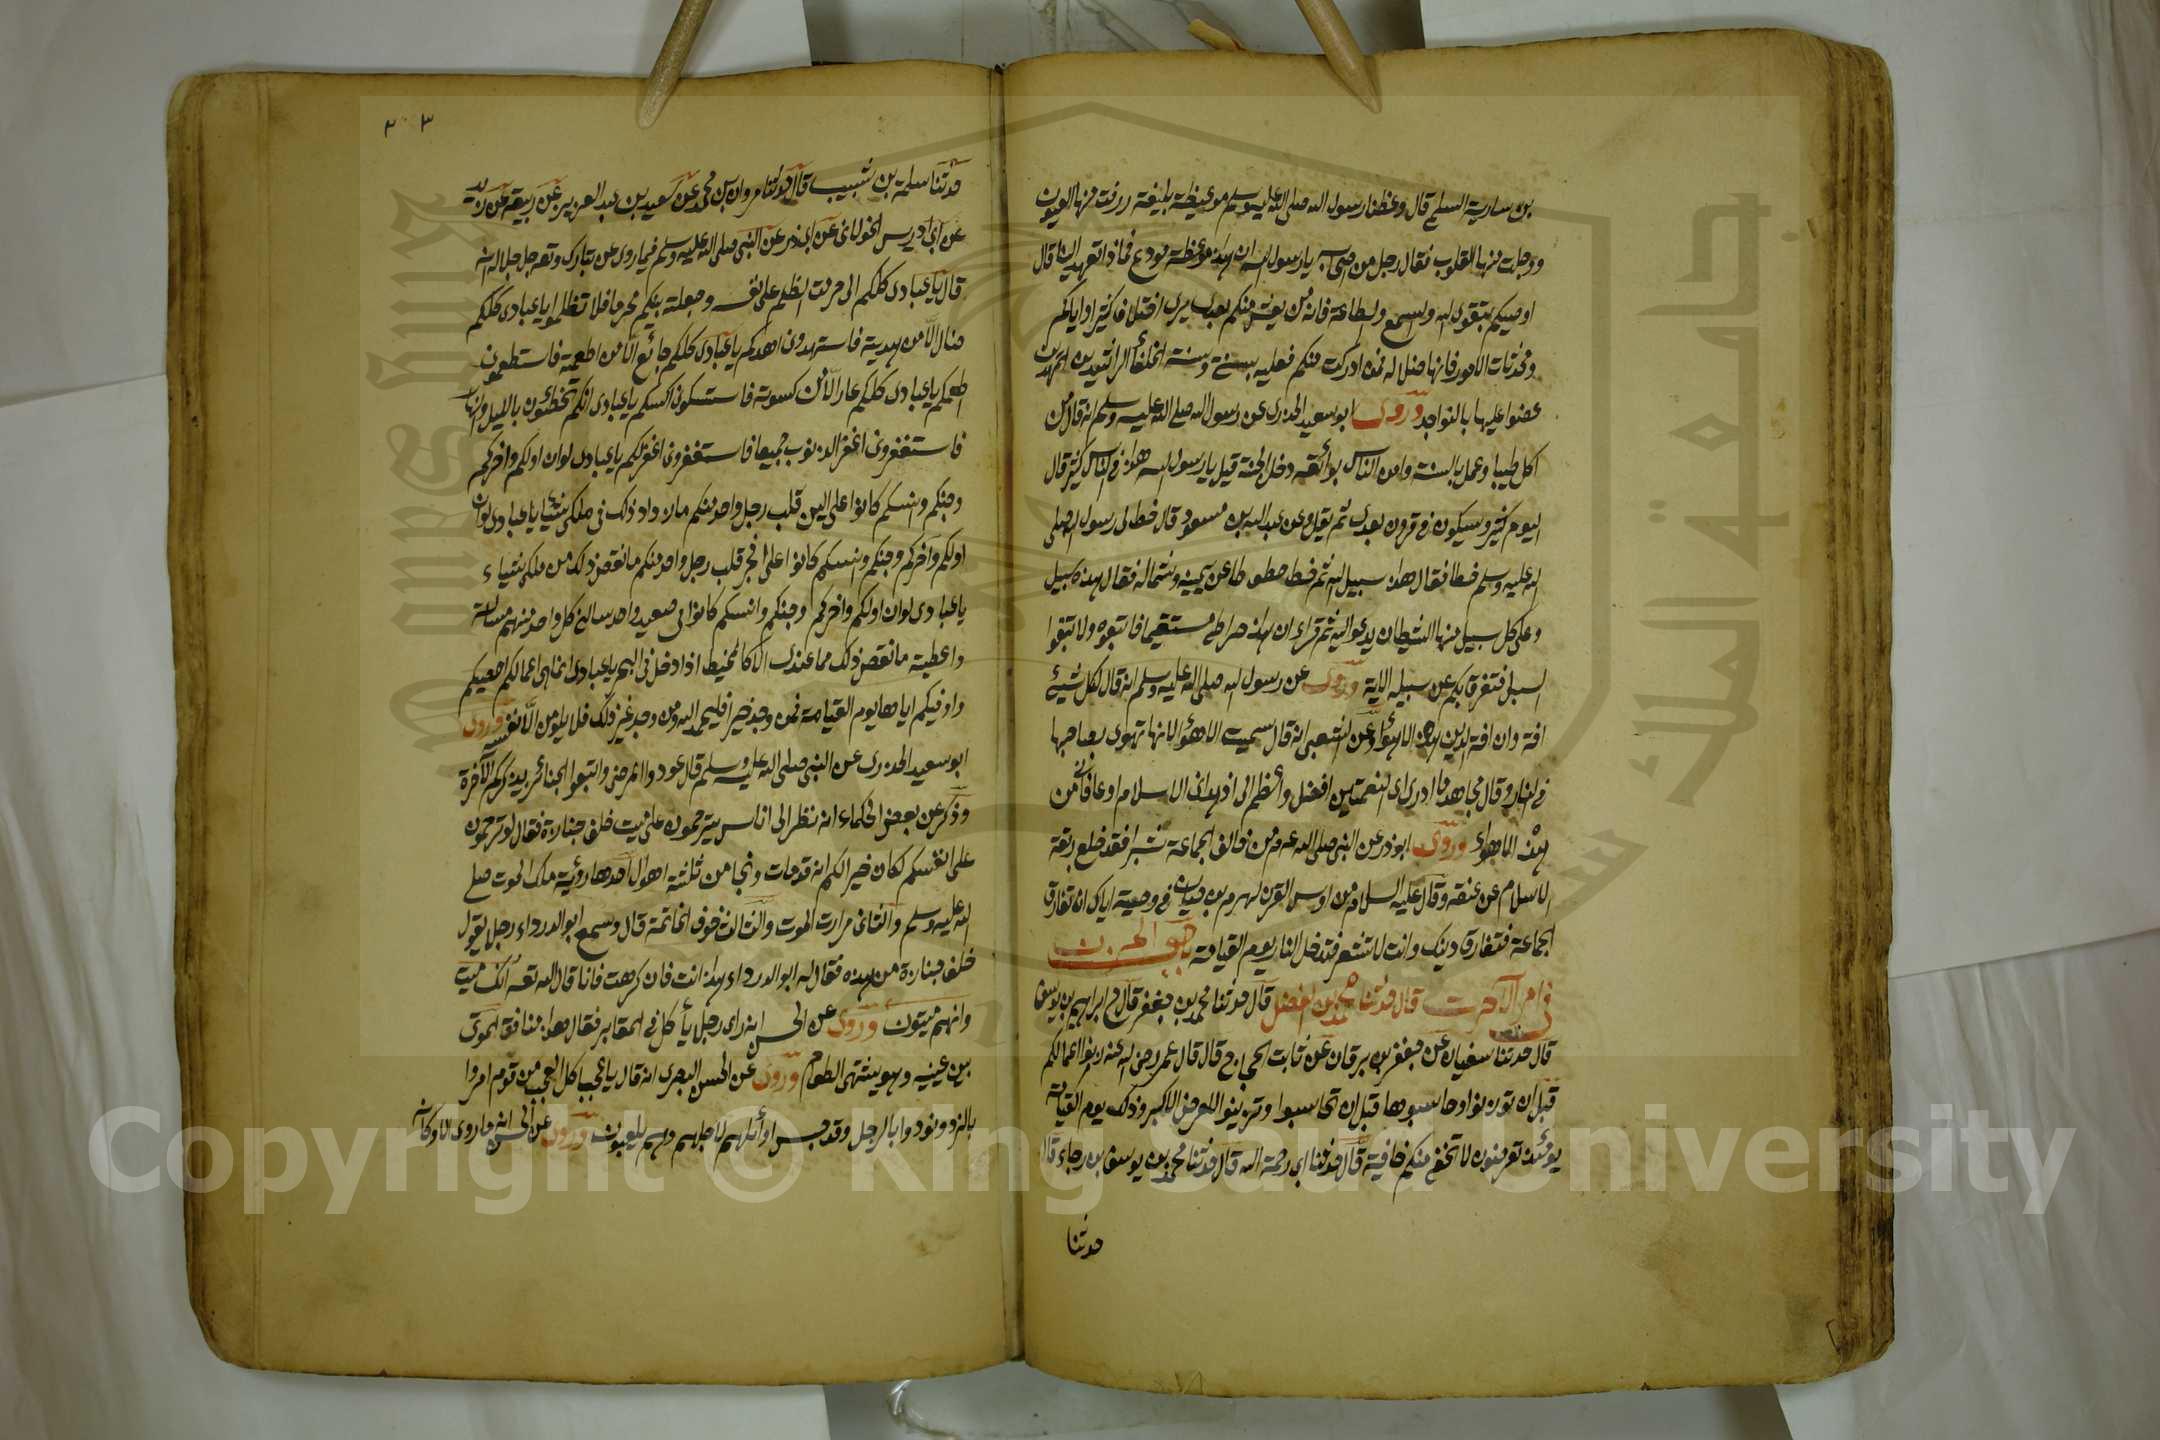 بن سارية السلمي قال وعظنا رسول الله صلى الله عليه وسلم موعظة بليغة ذرفت منها العيون
ووجلت منها القلوب فقال رجل من اصحابه يا رسول الله ان هذه موعظة مودع فماذا تعهد الينا قال
اوصيكم بتقوى الله والسمع والطاعة فانه من يعيش منكم بعدى يرى اختلافا كثيرا واياكم
ومحدثات الامور فانها ضلالة فمن ادركت منكم فعليه بسنتى وسنة الخلفاء الراشدين المهديين
عضوا عليها بالنواجد وروى ابو سعيد الخدرى عن رسول الله صلى الله عليه وسلم انه قال من
اكل طيبا وعمل بالسنة وامن الناس بوائقه دخل الجنة قيل يا رسول الله هذا فى الناس كثير قال
اليوم كثير وسيكون فى قرون بعدى ثم يقل وعن عبد الله بن مسعود قال خط لى رسول الله صلى
الله عليه وسلم خطا فقال هذا سبيل الله ثم خط خطوطا عن يمينه وشماله فقال هذه سبيل
وعلى كل سبيل منها الشيطان يدعو اليه ثم قراء ان هذا صراطى مستقيما فاتبعوه ولا تتبعوا
السبل فتفرق بكم عن سبيله الاية وروى عن رسول الله صلى الله عليه وسلم انه قال لكل شيئ
افة وان افة الدين هذه الاهواء وعن الشعبى انه قال سميت الاهواء لانها تهوى بصاحبها
فى النار وقال مجاهد ما ادرى اى النعمتين افضل واعظم الى اذ هدانى الاسلام او عافانى من
هذه الاهواء وروى ابو ذر عن النبى صلى الله عليه وسلم من خالف الجماعة شبرا فقد خلع ربقة
الاسلام من عنقه وقال عليه السلام من اوس القرنى لهرم بن حيان فى وصيته اياك ان تفارق
الجماعة فتفارق دينك وانت لا تشعر فتدخل النار يوم القيامة باب الحزن
فى امر الآخرت قال حدثنا محمد بن الفضل قال حدثنا محمد بن جعفر قال ح ابراهيم بن يوسف
قال حدثنا سفيان عن جعفر بن برقان عن ثابت الحجاج قال قال عمر رضى الله عنه زنوا اعمالكم
قبل ان توزنوا وحاسبوها قبل ان تحاسبوا وتزينوا للعرض الاكبر وذلك يوم القيامة
يومئذ تعرضون لا تخفى منكم خافية قال حدثنا ابى رحمة الله قال حدثنا محمد بن يوسف بن رجاء قال
حدثنا
٣٠٣
حدثنا سلمة بن شبيب قال حدثنا مروان بن محمد عن سعيد بن عبد العزيز عن ربيعة بن يزيد
عن ابى ادريس الخولانى عن ابى ذر عن النبى صلى الله عليه وسلم فيما روى عن تبارك وتعه جل جلاله انه
قال يا عبادى كلكم انى حرمت الظلم على نفسى وجعلته بينكم محرما فلا تظلموا يا عبادى كلكم
ضال الا من هديته فاستهدونى اهدكم يا عبادى كلكم جائع الا من اطعمته فاستطعمونى
اطعمكم يا عبادى كلكم عار الا من كسوته فاستكسونى اكسكم يا عبادى انكم تخطئون بالليل والنهار
فاستغفرونى اغفر الذنوب جميعا فاستغفرونى اغفر لكم يا عبادى لو ان اولكم واخركم
وجنكم وانسكم كانوا على الين قلب رجل واحد منكم ما زاد ذلك فى ملكى شيئا يا عبادى لو ان
اولكم وآخركم وجنكم وانسكم كانوا على افجر قلب رجل واحد منكم ما نقص ذلك من ملكى شياء
يا عبادى لو ان اولكم واخركم وجنكم وانسكم كانوا فى صعيد واحد سالنى كل واحد منهم مسئلة
واعطيته ما نقص ذلك مما عندى الا كالمخيط اذا دخل فى البحر يا عبادى انما هى اعمالكم احصيكم
واوفيكم اياها يوم القيامة فمن وجد خيرا فليحمد الله ومن وجد غير ذلك فلا يلومن الا نفسه وروى
ابو سعيد الخدرى عن النبى صلى الله عليه وسلم قال عودوا المرضى واتبعوا الجنائز يذكركم الآخرة
وذكر عن بعض الحكماء انه نظر الى اناس يترحمون على ميت خلف جنازة فقال لو ترحمون
على انفسكم لكان خيرا لكم انه قد مات ونجا من ثلثة اهوال احدها رؤية ملك الموت صلى
الله عليه وسلم والثانى مرارت الموت والثالث خوف الخاتمة قال وسمع ابو الدرداء رجل يقول
خلف جنازة من هذه فقال له ابو الدرداء هذا انت فان كرهت فانا قال الله تعه انك ميت
وانهم ميتون وروى عن الحسن انه راى رجل يأكل فى المقابر فقال هذا منافق الموتى
بين عينيه وهو يشتهى الطعام وروى عن الحسن البصرى انه قال يا عجبا كل العجب من قوم امروا
بالزاد ونودوا بالرحل وقد حبس اوائلهم لآخلهم وهم يلعبون وروى عن الحسن انه ما روى الا وكانه
Copyright © King Saud University
جامعة الملك سعود